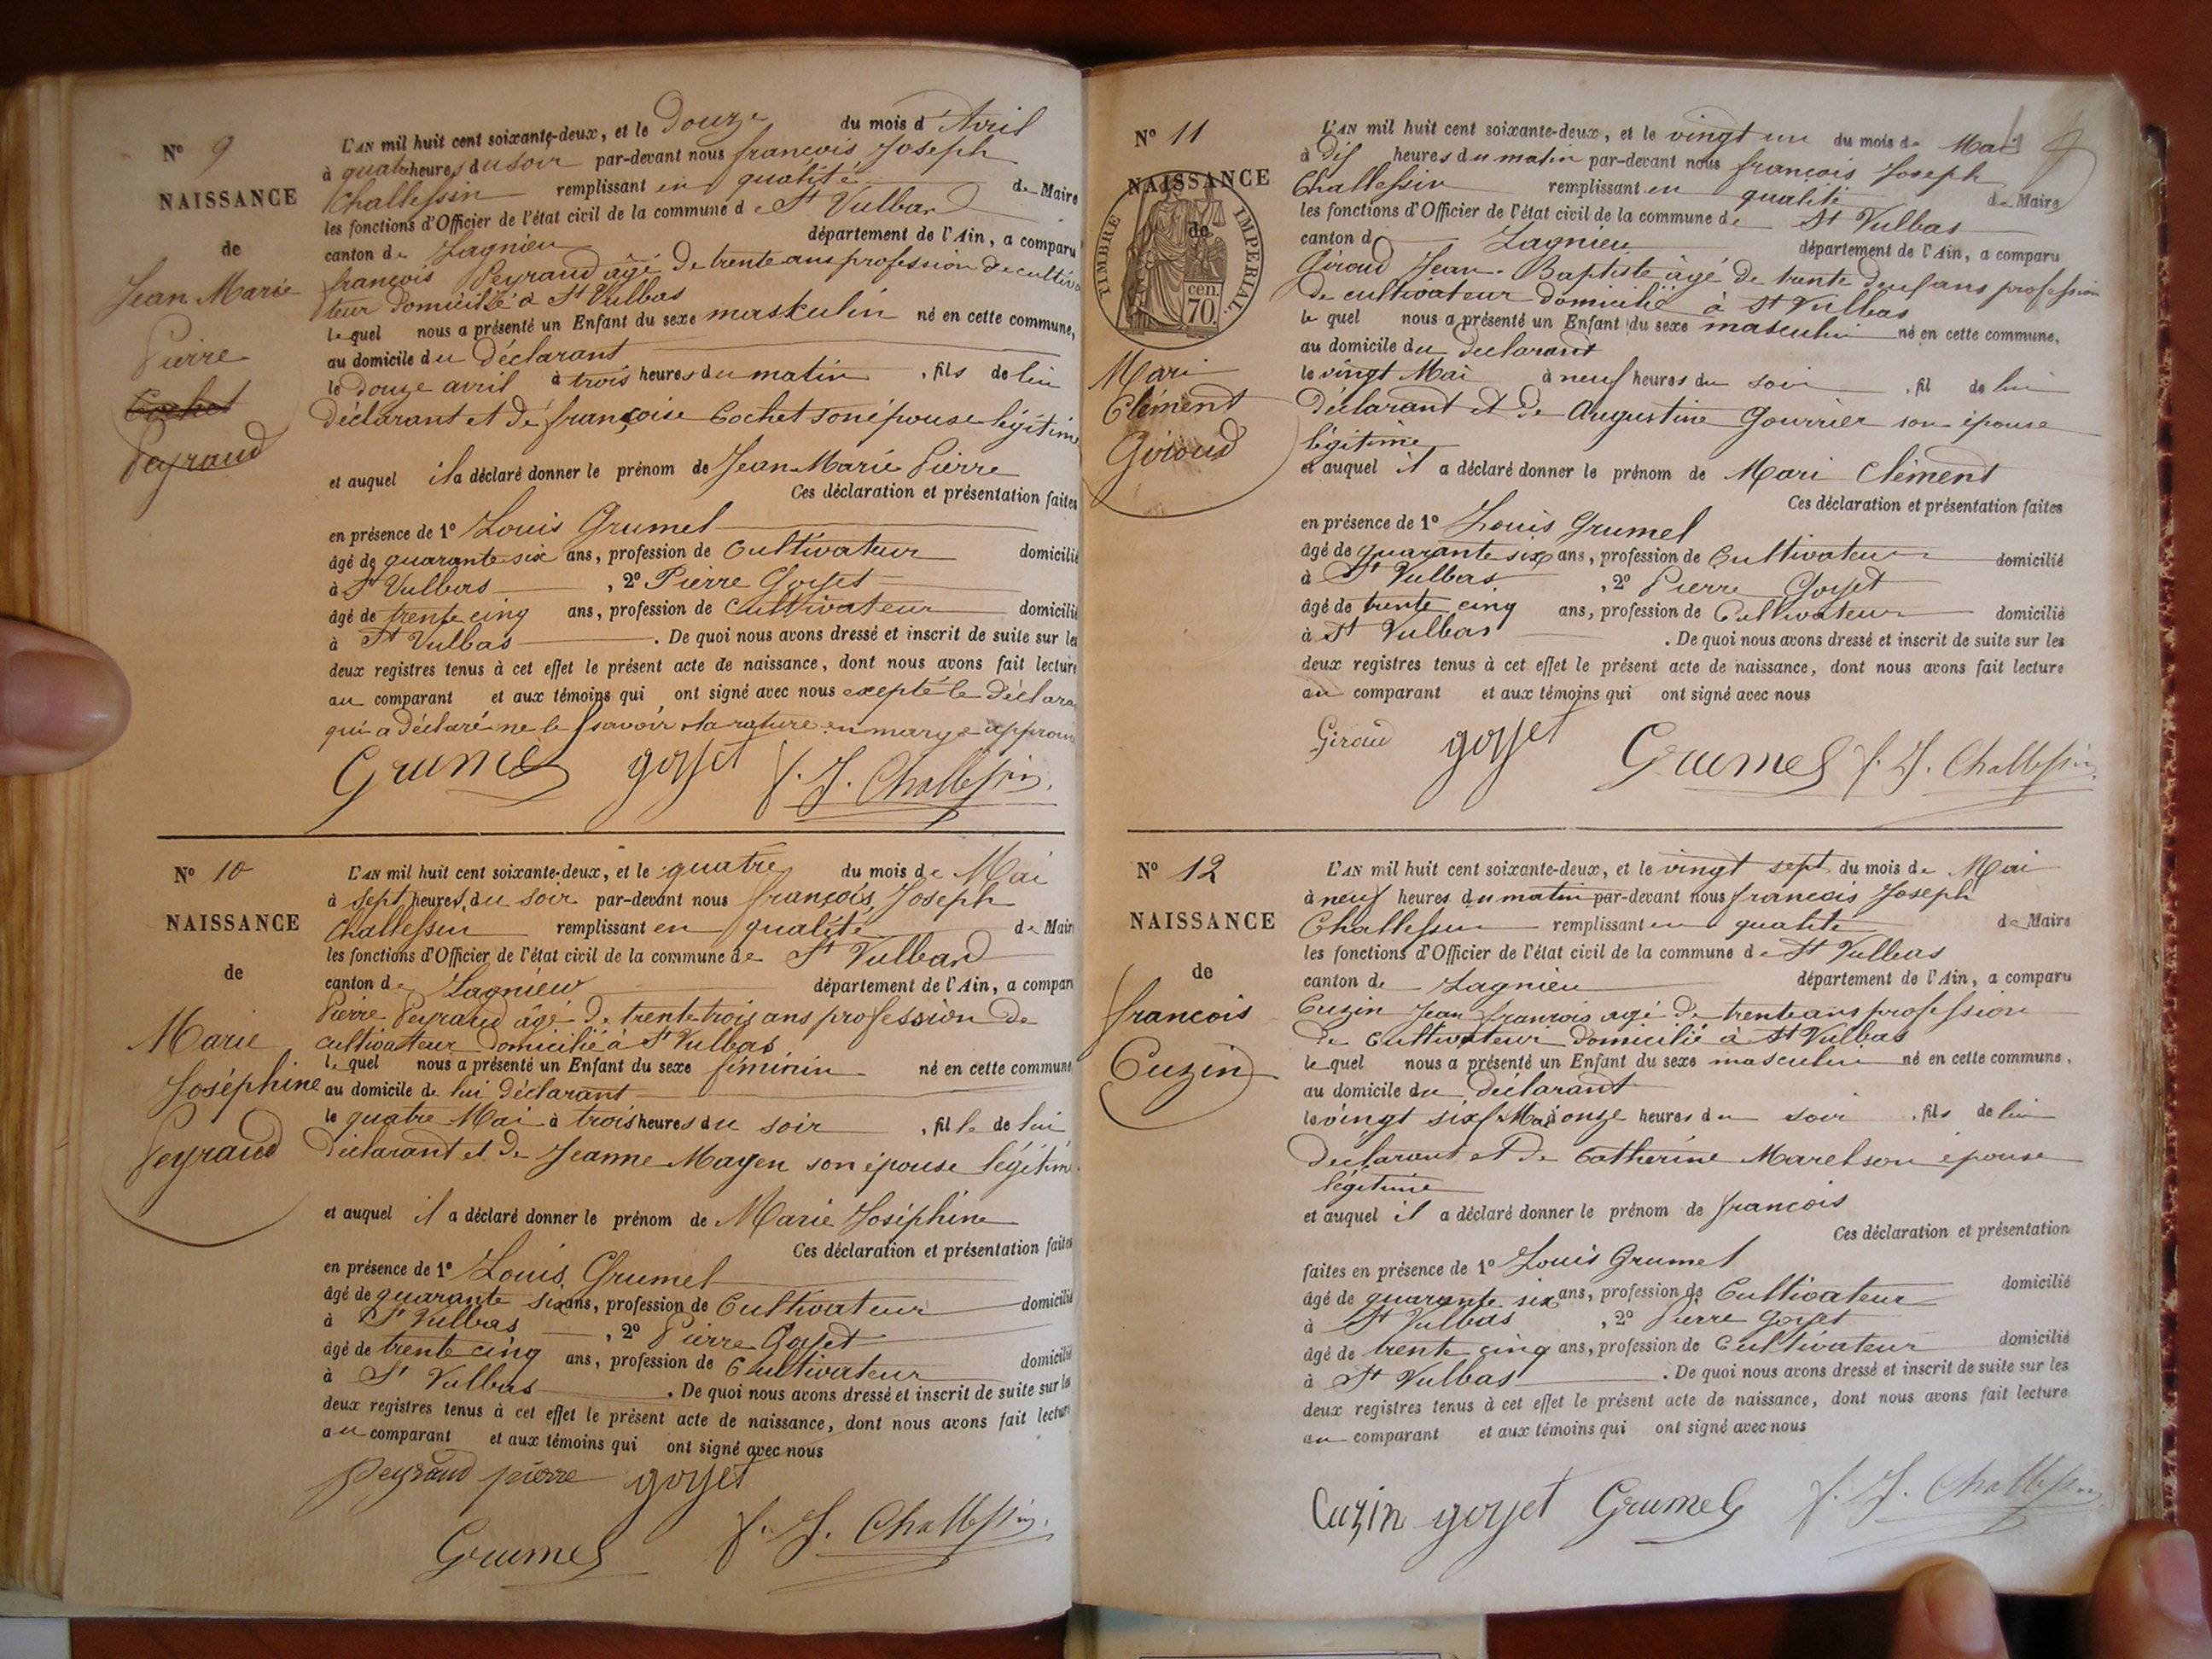 N° 9
NAISSANCE
de
Jean Marie
Pierre
Cochet
Peyraud
L'AN mil huit cent soixante-deux, et le Douze du mois d'Avril
à quatre heures du soir par-devant nous françois Joseph
Challessin remplissant en qualité de Maire
les fonctions d'Officier de l'état civil de la commune de St Vulbas
canton de Lagnieu département de l'Ain, a comparu
françois Peyraud âgé de trente ans profession de cultiva
teur domicilié à St Vulbas
lequel nous a présenté un Enfant du sexe maskulin né en cette commune,
au domicile du déclarant
le douze avril à trois heures du matin, fils de lui
déclarant et de françoise Cochet son épouse légitime
et auquel il a déclaré donner le prénom de Jean Marie Pierre
Ces déclaration et présentation faites
en présence de 1° Louis Grumel
âgé de quarante six ans, profession de Cultivateur domicilié
à St Vulbas, 2° Pierre Goyet
âgé de trente cinq ans, profession de Cultivateur domicilié
à St Vulbas. De quoi nous avons dressé et inscrit de suite sur les
deux registres tenus à cet effet le présent acte de naissance, dont nous avons fait lecture
au comparant et aux témoins qui ont signé avec nous excepté le déclara
qui a déclaré ne le savoir la rature en marge approuv
Grumel goyet f. J. Challessin
N° 10
NAISSANCE
de
Marie
Joséphine
Peyraud
L'AN mil huit cent soixante-deux, et le quatre du mois de Mai
à sept heures du soir par-devant nous françois Joseph
Challessin remplissant en qualité de Maire
les fonctions d'Officier de l'état civil de la commune de St Vulbas
canton de Lagnieu département de l'Ain, a comparu
Pierre Peyraud âgé de trente trois ans profession de
cultivateur domicilié à St Vulbas
lequel nous a présenté un Enfant du sexe féminin né en cette commune
au domicile de lui déclarant
le quatre Mai à trois heures du soir, fille de lui
déclarant et de Jeanne Mayen son épouse légitime
et auquel il a déclaré donner le prénom de Marie Joséphine
Ces déclaration et présentation faites
en présence de 1° Louis Grumel
âgé de quarante six ans, profession de Cultivateur domicilié
à St Vulbas, 2° Pierre Goyet
âgé de trente cinq ans, profession de Cultivateur domicilié
à St Vulbas. De quoi nous avons dressé et inscrit de suite sur les
deux registres tenus à cet effet le présent acte de naissance, dont nous avons fait lecture
au comparant et aux témoins qui ont signé avec nous
peyraud pierre goyet
Grumel f. J. Challessin
N° 11
NAISSANCE
de
TIMBRE IMPERIAL.
cen.
70.
Mari
Clément
Giroud
L'AN mil huit cent soixante-deux, et le vingt un du mois de Mai
à dix heures du matin par-devant nous françois Joseph
Challessin remplissant en qualité de Maire
les fonctions d'Officier de l'état civil de la commune de St Vulbas
canton d Lagnieu département de l'Ain, a comparu
Giroud Jean-Baptiste âgé de trente deux ans profession
de cultivateur domicilié à St Vulbas
lequel nous a présenté un Enfant du sexe masculin né en cette commune,
au domicile du déclarant
le vingt Mai à neuf heures du soir, fil de lui
déclarant et de Augustine Gourrier son épouse
légitime
et auquel il a déclaré donner le prénom de Mari Clément
Ces déclaration et présentation faites
en présence de 1° Louis Grumel
âgé de quarante six ans, profession de Cultivateur domicilié
à St Vulbas, 2° Pierre Goyet
âgé de trente cinq ans, profession de Cultivateur domicilié
à St Vulbas. De quoi nous avons dressé et inscrit de suite sur les
deux registres tenus à cet effet le présent acte de naissance, dont nous avons fait lecture
au comparant et aux témoins qui ont signé avec nous
Giroud goyet Grumel f. J. Challessin
N° 12
NAISSANCE
de
françois
Cuzin
L'AN mil huit cent soixante-deux, et le vingt sept du mois de Mai
à neuf heures du matin par-devant nous françois Joseph
Challessin remplissant en qualité de Maire
les fonctions d'Officier de l'état civil de la commune de St Vulbas
canton de Lagnieu département de l'Ain, a comparu
Cuzin Jean françois agé de trente ans profession
de Cultivateur domicilié à St Vulbas
lequel nous a présenté un Enfant du sexe masculin né en cette commune,
au domicile du déclarant
le vingt six Mai à onze heures du soir, fils de lui
déclarant et de Catherine Marel son épouse
légitime
et auquel il a déclaré donner le prénom de françois
Ces déclaration et présentation
faites en présence de 1° Louis Grumel
âgé de quarante six ans, profession de Cultivateur domicilié
à St Vulbas, 2° Pierre Goyet
âgé de trente cinq ans, profession de Cultivateur domicilié
à St Vulbas. De quoi nous avons dressé et inscrit de suite sur les
deux registres tenus à cet effet le présent acte de naissance, dont nous avons fait lecture
au comparant et aux témoins qui ont signé avec nous
Cuzin goyet Grumel f. J. Challessin